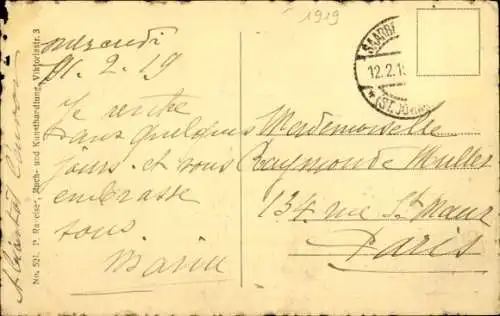 1919
mercredi
12. 2. 19
Je rentre
dans quelques
jours et vous
embrasse
tous
Marie
Mademoiselle
Raymonde Muller
134 rue St Maur
Paris
SAARBR
12.2.1
* (ST. JOH
No. 521. P. Buch- und Kunsthandlung, Viktoriastr. 3